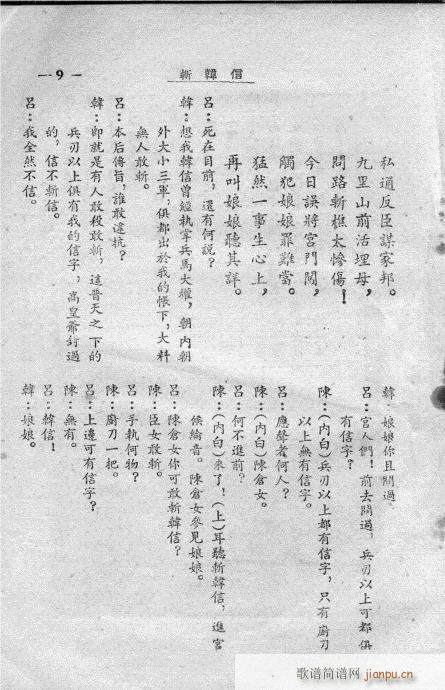 斬韓信
— 9 —
私通反臣謀家邦。
九里山前活埋母，
問路斬樵太慘傷！
今日誤將宮門闖，
觸犯娘娘罪難當。
猛然一事生心上，
再叫娘娘聽其詳。
呂：死在目前，還有何說？
韓：想我韓信曾經執掌兵馬大權，朝內朝
外大小三軍，俱都出於我的帳下，大料
無人敢斬。
呂：本后傳旨，誰敢違抗？
韓：即就是有人敢殺敢斬，這普天之下的
兵刃以上俱有我的信字，高皇爺封過
的，信不斬信。
呂：我全然不信。
韓：娘娘你且問過。
呂：宮人們！前去問過，兵刃以上可都俱
有信字？
陳：（內白）兵刃以上都有信字，只有廚刀
以上無有信字。
呂：應聲者何人？
陳：（內白）陳倉女。
呂：何不進前？
陳：（內白）來了！（上）耳聽斬韓信，進宮
候綸音。陳倉女參見娘娘。
呂：陳倉女你可敢斬韓信？
陳：臣女敢斬。
呂：手執何物？
陳：廚刀一把。
呂：上邊可有信字？
陳：無有。
呂：韓信！
韓：娘娘。
歌谱简谱网
jianpu.cn